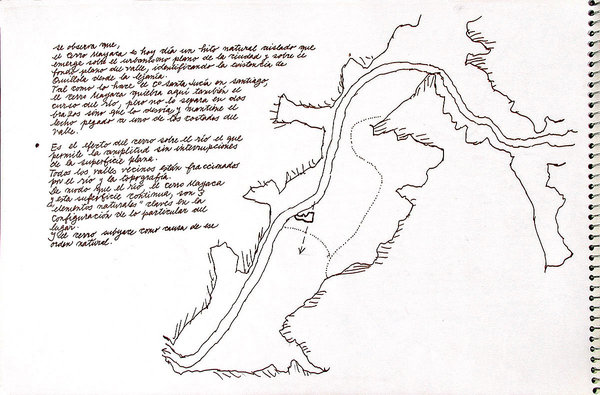 se observa que,
el cerro Mayaca es hoy día un hito natural aislado que
emerge sobre el urbanismo plano de la ciudad y sobre el
fondo plano del valle, identificando la existencia de
Quillota desde la lejanía.
Tal como lo hace el Cº Santa Lucía en Santiago,
el cerro Mayaca quiebra aquí también el
curso del río, pero no lo separa en dos
brazos sino que lo desvía y mantiene el
lecho pegado a uno de los costados del
valle.
Es el efecto del cerro sobre el río el que
permite la amplitud sin interrupciones
de la superficie plana.
Todos los valles vecinos están fraccionados
por el río y la topografía.
De modo que el río, el cerro Mayaca
y esta superficie continua, son 3
"elementos naturales" claves en la
configuración de lo particular del
lugar.
Y el cerro subyace como causa de ese
orden natural.